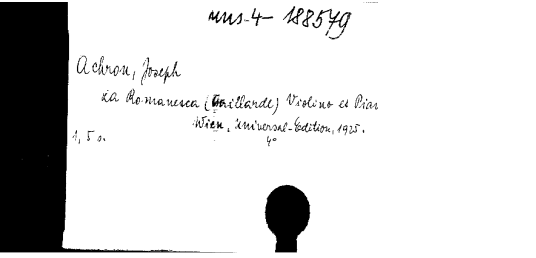 mus. 4- 188579
Achron, Joseph
La Romanesca (Gaillarde) Violino et Pian
Wien, Universal-Edition, 1925.
1, 5 s. 4°